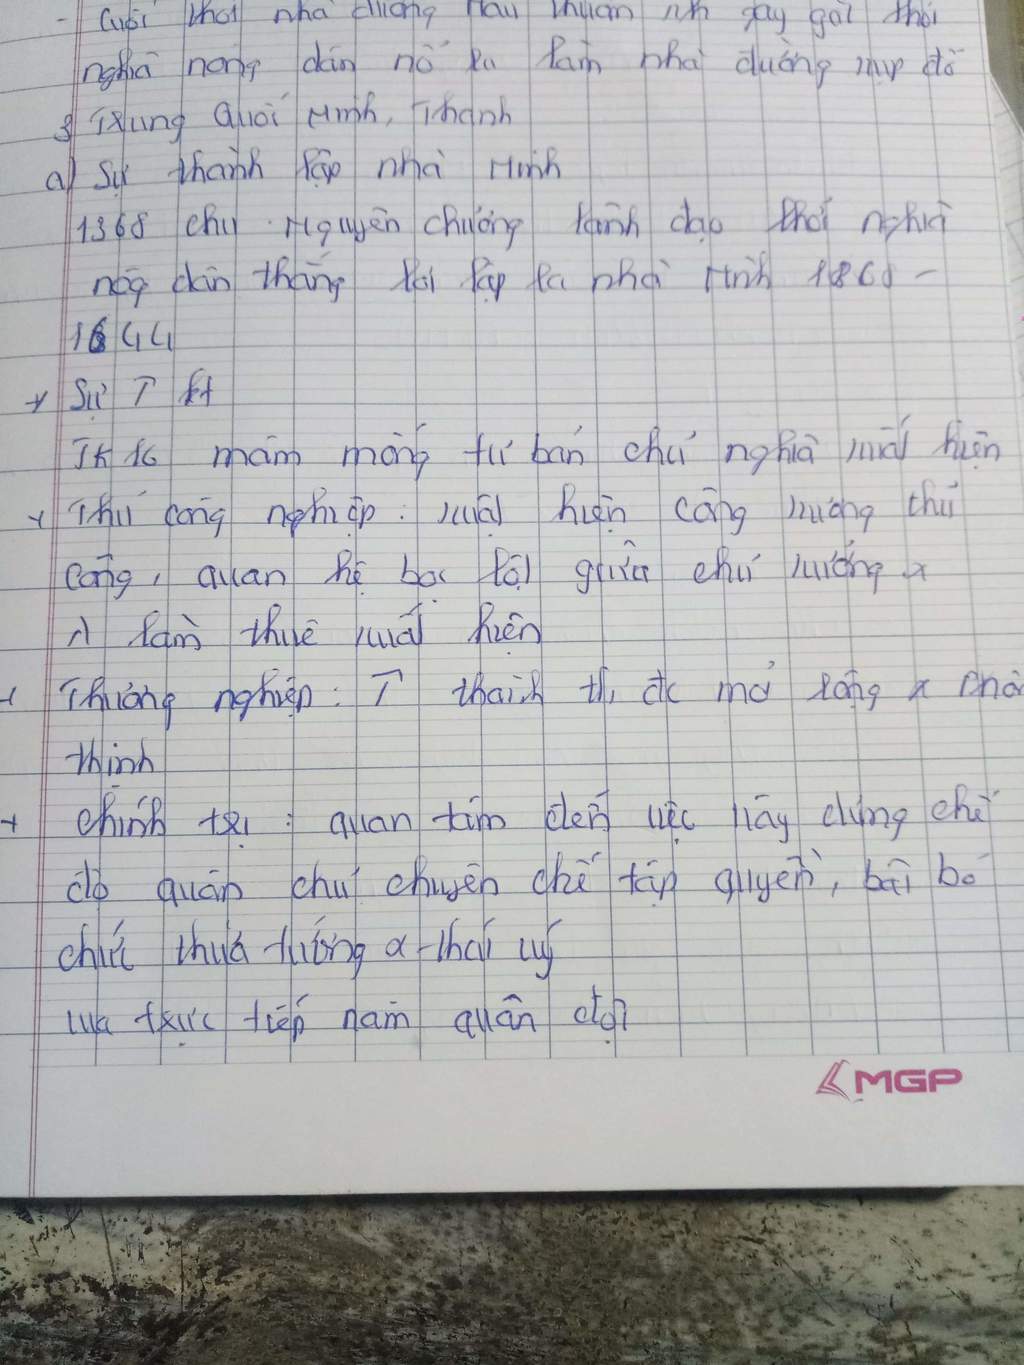 - Cuối thời nhà đường mâu thuẫn nh gay gắt khởi
nghĩa nông dân nổ ra làm nhà đường sụp đổ
3 Trung Quốc Minh, Thanh
a) Sự thành lập nhà Minh
1368 chu Nguyên chương lãnh đạo khởi nghĩa
nôg dân thắng lợi lập ra nhà Minh 1368 -
1644
+ Sự T kt
TK 16 mầm mống tư bản chủ nghĩa xuất hiện
+ Thủ công nghiệp: xuất hiện công xưởng thủ
công, quan hệ bóc lột giữa chủ xưởng α
λ làm thuê xuất hiện
+ Thương nghiệp: T thành thị đc mở rộng α phồn
thịnh
+ chính trị: quan tâm đến việc xây dựng chế
độ quân chủ chuyên chế tập quyền, bãi bỏ
chức thừa tướng α thái uý
vua trực tiếp nắm quân đội
MGP